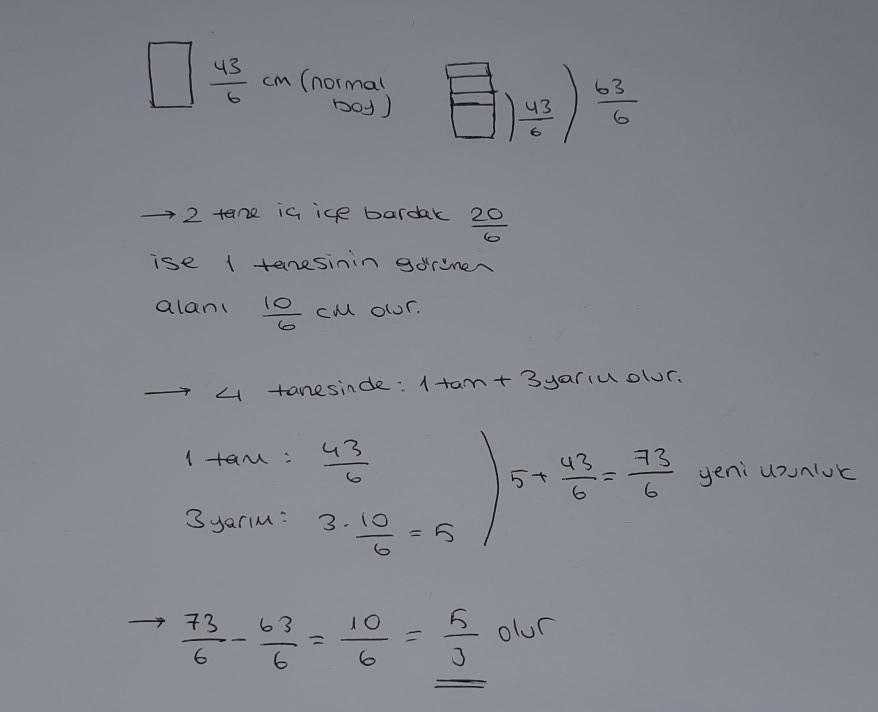 43/6 cm (normal boy)
43/6 63/6
→ 2 tane iç içe bardak 20/6
ise 1 tanesinin görünen
alanı 10/6 cm olur.
→ 4 tanesinde: 1 tam + 3 yarım olur.
1 tam: 43/6
3 yarım: 3 . 10/6 = 5
5 + 43/6 = 73/6 yeni uzunluk
→ 73/6 - 63/6 = 10/6 = 5/3 olur